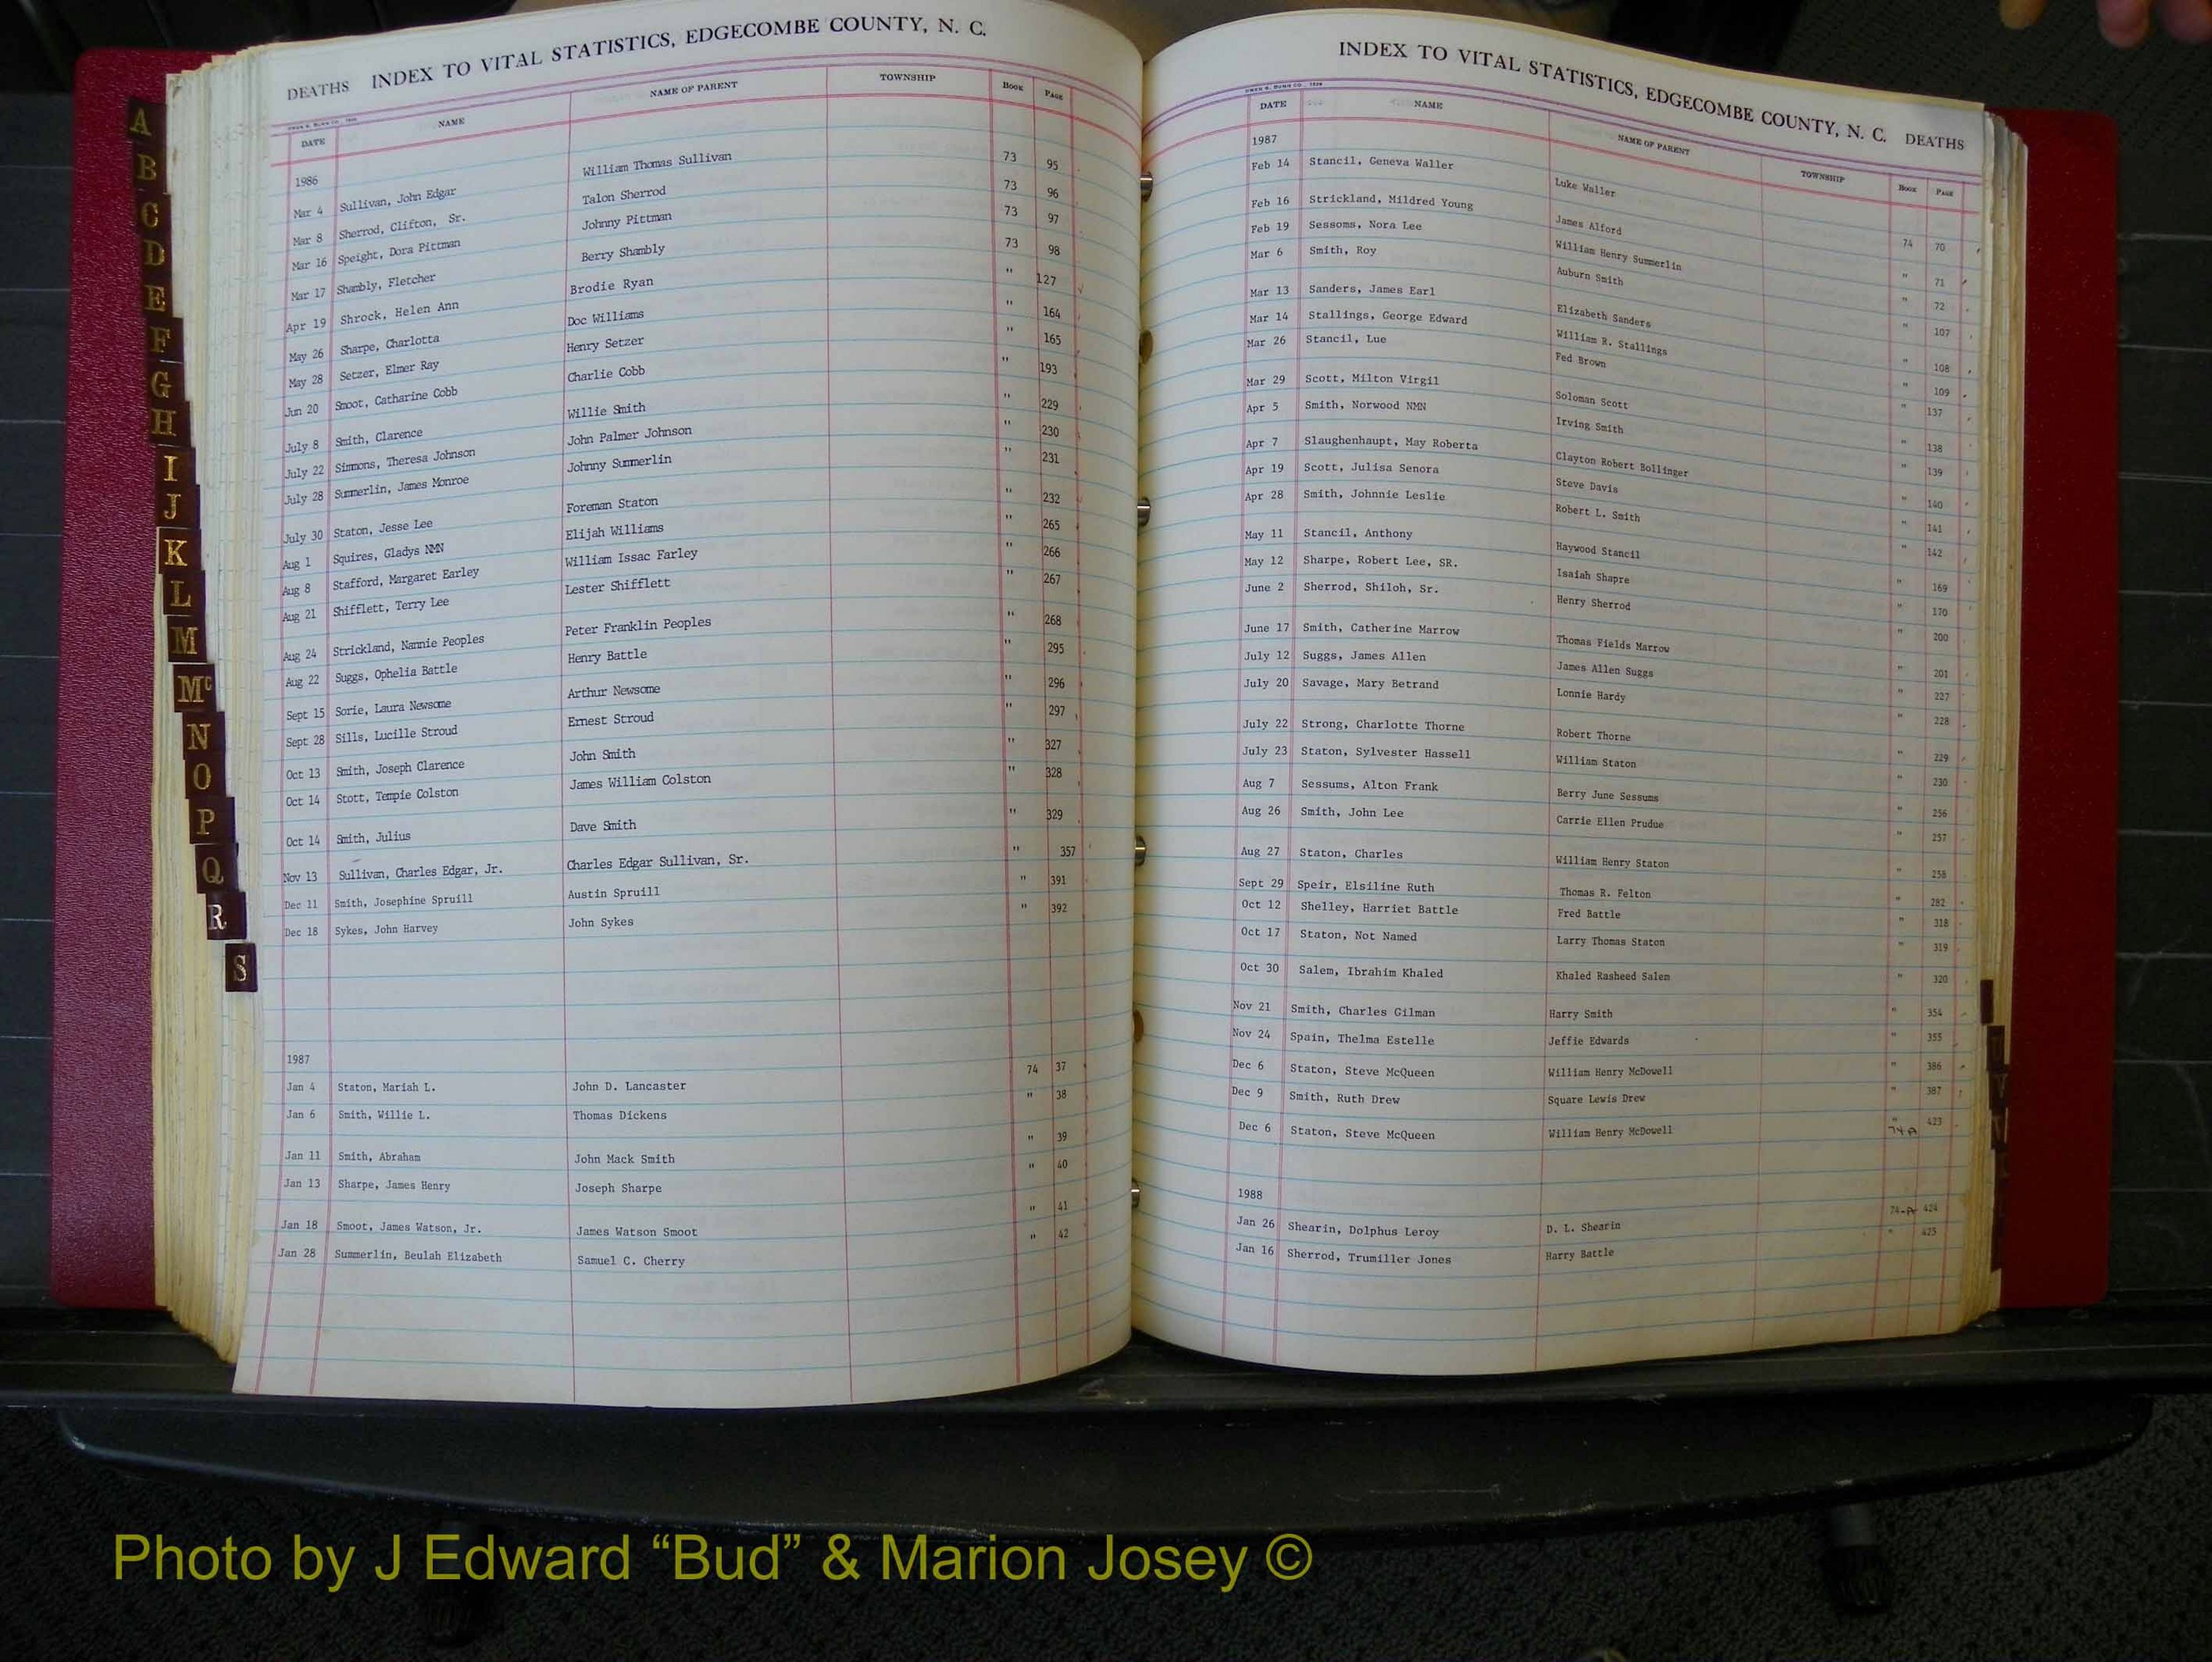 DEATHS INDEX TO VITAL STATISTICS, EDGECOMBE COUNTY, N. C.
DATE NAME NAME OF PARENT TOWNSHIP BOOK PAGE
1986
Mar 4 Sullivan, John Edgar William Thomas Sullivan 73 95
Mar 8 Sherrod, Clifton, Sr. Talon Sherrod 73 96
Mar 16 Speight, Dora Pittman Johnny Pittman 73 97
Mar 17 Shambly, Fletcher Berry Shambly 73 98
Apr 19 Shrock, Helen Ann Brodie Ryan " 127
May 26 Sharpe, Charlotta Doc Williams " 164
May 28 Setzer, Elmer Ray Henry Setzer " 165
Jun 20 Smoot, Catharine Cobb Charlie Cobb " 193
July 8 Smith, Clarence Willie Smith " 229
July 22 Simmons, Theresa Johnson John Palmer Johnson " 230
July 28 Summerlin, James Monroe Johnny Summerlin " 231
July 30 Staton, Jesse Lee Foreman Staton " 232
Aug 1 Squires, Gladys NMN Elijah Williams " 265
Aug 8 Stafford, Margaret Earley William Issac Farley " 266
Aug 21 Shifflett, Terry Lee Lester Shifflett " 267
Aug 24 Strickland, Nannie Peoples Peter Franklin Peoples " 268
Aug 22 Suggs, Ophelia Battle Henry Battle " 295
Sept 15 Sorie, Laura Newsome Arthur Newsome " 296
Sept 28 Sills, Lucille Stroud Ernest Stroud " 297
Oct 13 Smith, Joseph Clarence John Smith " 327
Oct 14 Stott, Tempie Colston James William Colston " 328
Oct 14 Smith, Julius Dave Smith " 329
Nov 13 Sullivan, Charles Edgar, Jr. Charles Edgar Sullivan, Sr. " 357
Dec 11 Smith, Josephine Spruill Austin Spruill " 391
Dec 18 Sykes, John Harvey John Sykes " 392
1987
Jan 4 Staton, Mariah L. John D. Lancaster 74 37
Jan 6 Smith, Willie L. Thomas Dickens " 38
Jan 11 Smith, Abraham John Mack Smith " 39
Jan 13 Sharpe, James Henry Joseph Sharpe " 40
Jan 18 Smoot, James Watson, Jr. James Watson Smoot " 41
Jan 28 Summerlin, Beulah Elizabeth Samuel C. Cherry " 42
INDEX TO VITAL STATISTICS, EDGECOMBE COUNTY, N. C. DEATHS
DATE NAME NAME OF PARENT TOWNSHIP BOOK PAGE
1987
Feb 14 Stancil, Geneva Waller Luke Waller 74 70
Feb 16 Strickland, Mildred Young James Alford " 71
Feb 19 Sessoms, Nora Lee William Henry Summerlin " 72
Mar 6 Smith, Roy Auburn Smith " 107
Mar 13 Sanders, James Earl Elizabeth Sanders " 108
Mar 14 Stallings, George Edward William R. Stallings " 109
Mar 26 Stancil, Lue Fed Brown " 137
Mar 29 Scott, Milton Virgil Soloman Scott " 138
Apr 5 Smith, Norwood NMN Irving Smith " 139
Apr 7 Slaughenhaupt, May Roberta Clayton Robert Bollinger " 140
Apr 19 Scott, Julisa Senora Steve Davis " 141
Apr 28 Smith, Johnnie Leslie Robert L. Smith " 142
May 11 Stancil, Anthony Haywood Stancil " 169
May 12 Sharpe, Robert Lee, SR. Isaiah Shapre " 170
June 2 Sherrod, Shiloh, Sr. Henry Sherrod " 200
June 17 Smith, Catherine Marrow Thomas Fields Marrow " 201
July 12 Suggs, James Allen James Allen Suggs " 227
July 20 Savage, Mary Betrand Lonnie Hardy " 228
July 22 Strong, Charlotte Thorne Robert Thorne " 229
July 23 Staton, Sylvester Hassell William Staton " 230
Aug 7 Sessums, Alton Frank Berry June Sessums " 256
Aug 26 Smith, John Lee Carrie Ellen Prudue " 257
Aug 27 Staton, Charles William Henry Staton " 258
Sept 29 Speir, Elsiline Ruth Thomas R. Felton " 282
Oct 12 Shelley, Harriet Battle Fred Battle " 318
Oct 17 Staton, Not Named Larry Thomas Staton " 319
Oct 30 Salem, Ibrahim Khaled Khaled Rasheed Salem " 320
Nov 21 Smith, Charles Gilman Harry Smith " 354
Nov 24 Spain, Thelma Estelle Jeffie Edwards " 355
Dec 6 Staton, Steve McQueen William Henry McDowell " 386
Dec 9 Smith, Ruth Drew Square Lewis Drew " 387
Dec 6 Staton, Steve McQueen William Henry McDowell " 74A 423
1988
Jan 26 Shearin, Dolphus Leroy D. L. Shearin 74-A 424
Jan 16 Sherrod, Trumiller Jones Harry Battle " 425
A
B
C
D
E
F
G
H
I
J
K
L
M
Mc
N
O
P
Q
R
S
Photo by J Edward “Bud” & Marion Josey ©